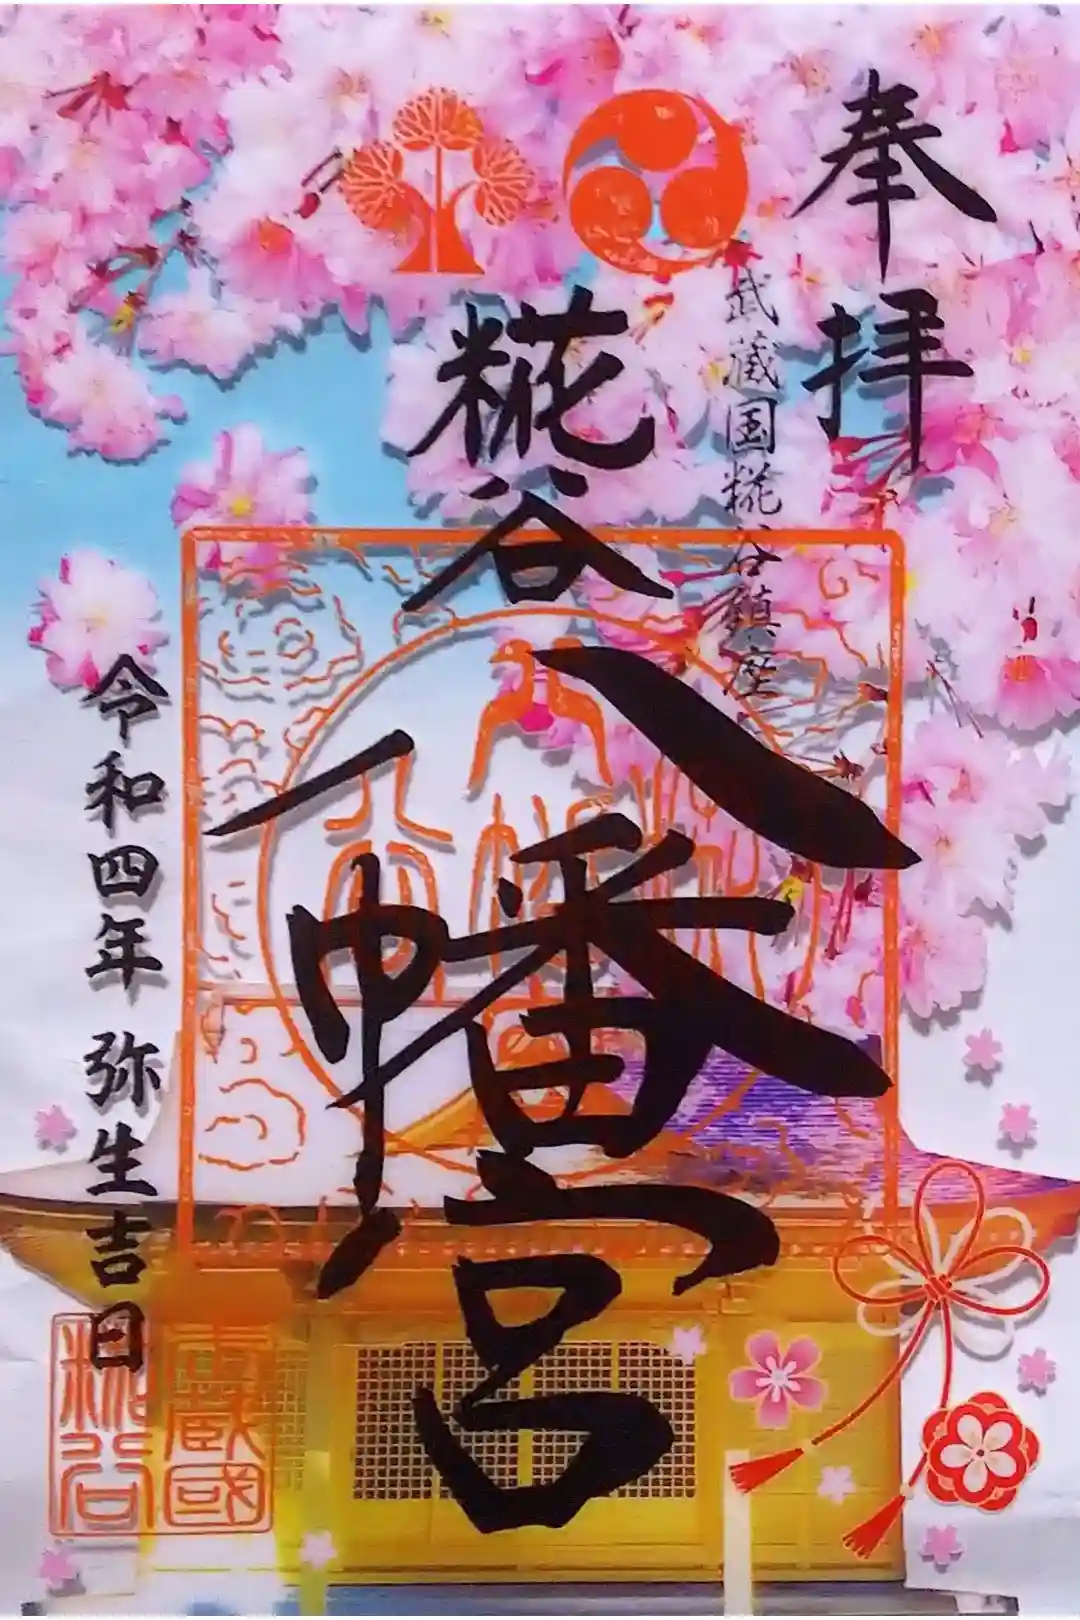 奉拝
武蔵国糀谷鎮座
糀谷
八幡宮
令和四年 弥生吉日
武蔵國
糀谷